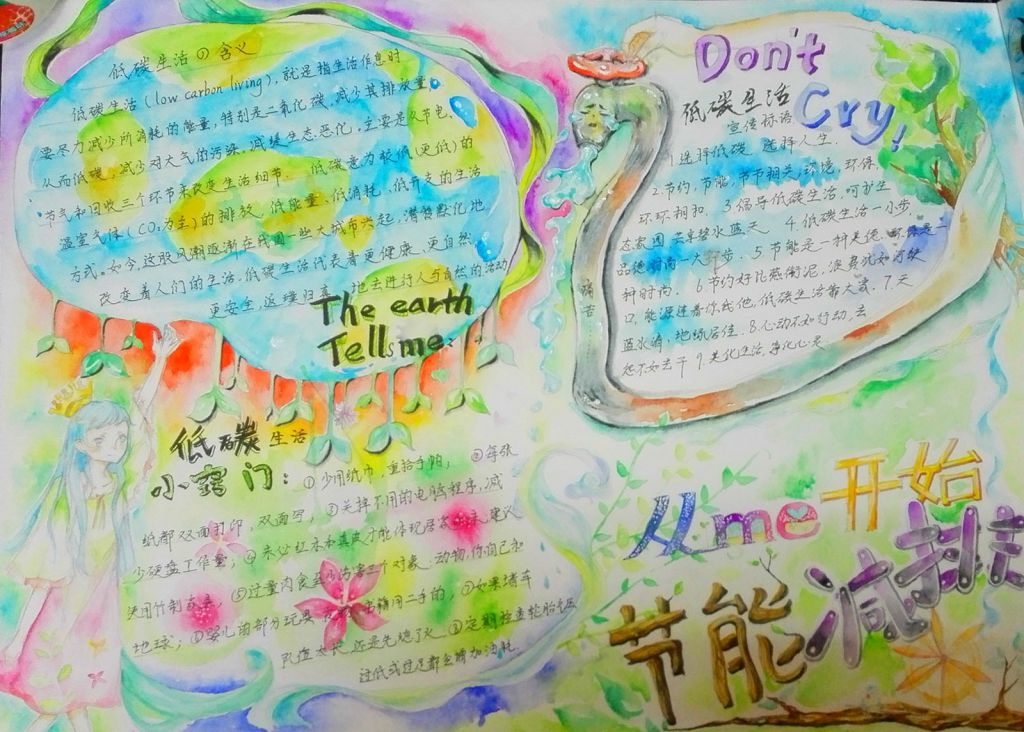 低碳生活的含义
低碳生活(low carbon living),就是指生活作息时
要尽力减少所消耗的能量,特别是二氧化碳,减少其排放量,
从而低碳,减少对大气的污染,减缓生态恶化,主要是从节电、
节气和回收三个环节来改变生活细节.低碳意为较低(更低)的
温室气体(CO₂为主)的排放,低能量、低消耗、低开支的生活
方式。如今,这股风潮逐渐在我国一些大城市兴起,潜移默化地
改变着人们的生活.低碳生活代表着更健康、更自然、
更安全,返璞归真地去进行人与自然的活动
The earth
Tells me:
低碳生活
小窍门:①少用纸巾,重拾手帕, ②每张
纸都双面打印,双面写, ③关掉不用的电脑程序,减
少硬盘工作量; ④未必红木和真皮才能体现居家 建议
使用竹制家具, ⑤过量肉食至少伤害三个对象:动物,你自己和
地球; ⑥婴儿的部分玩具 用二手的, ⑦如果堵车
队伍太长,还是先熄了火, ⑧定期检查轮胎气压
过低或过足都会增加油耗.
Don't
Cry!
低碳生活
宣传标语
1.选择低碳 选择人生.
2.节约,节能,节节相关,环境,环保,
环环相扣. 3.倡导低碳生活,呵护生
态家园 共享碧水蓝天 4.低碳生活一小步
品德 一大步. 5.节能是一种美德 环保是一
种时尚. 6.节约好比燕衔泥,浪费犹如河缺
口,能源连着你我他,低碳生活靠大家. 7.天
蓝水清,地绿居佳. 8.心动不如行动,去
想不如去干 9.美化生活,净化心灵.
从me开始
节能减排